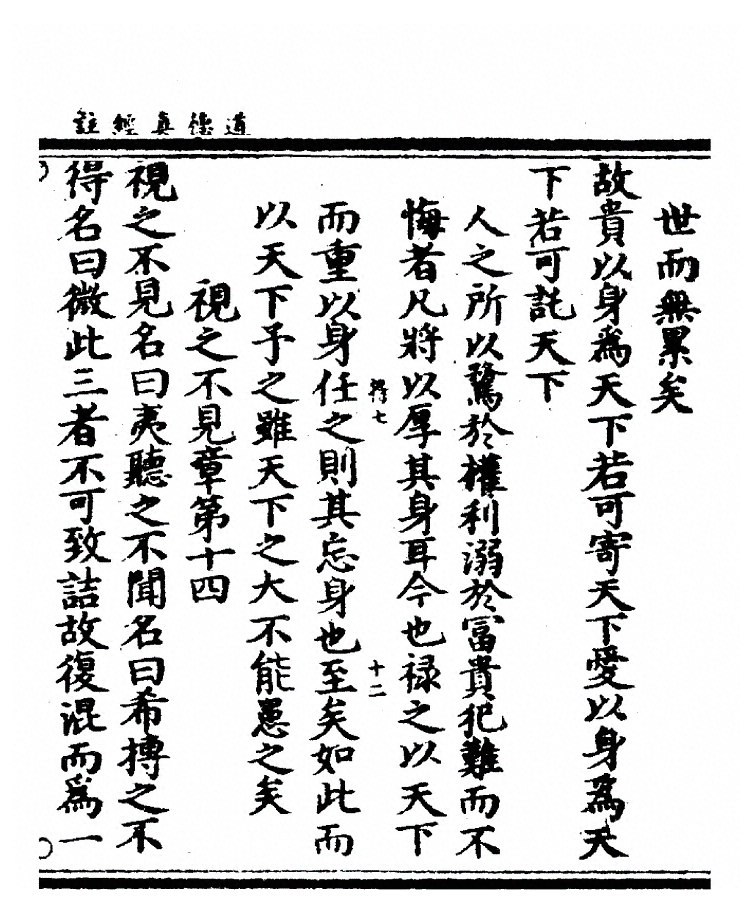 道德真經註
世而無累矣
故貴以身爲天下若可寄天下愛以身爲天
下若可託天下
人之所以騖於權利溺於富貴犯難而不
悔者凡將以厚其身耳今也禄之以天下
得七 十二
而重以身任之則其忘身也至矣如此而
以天下予之雖天下之大不能患之矣
視之不見章第十四
視之不見名曰夷聽之不聞名曰希搏之不
得名曰微此三者不可致詰故復混而爲一